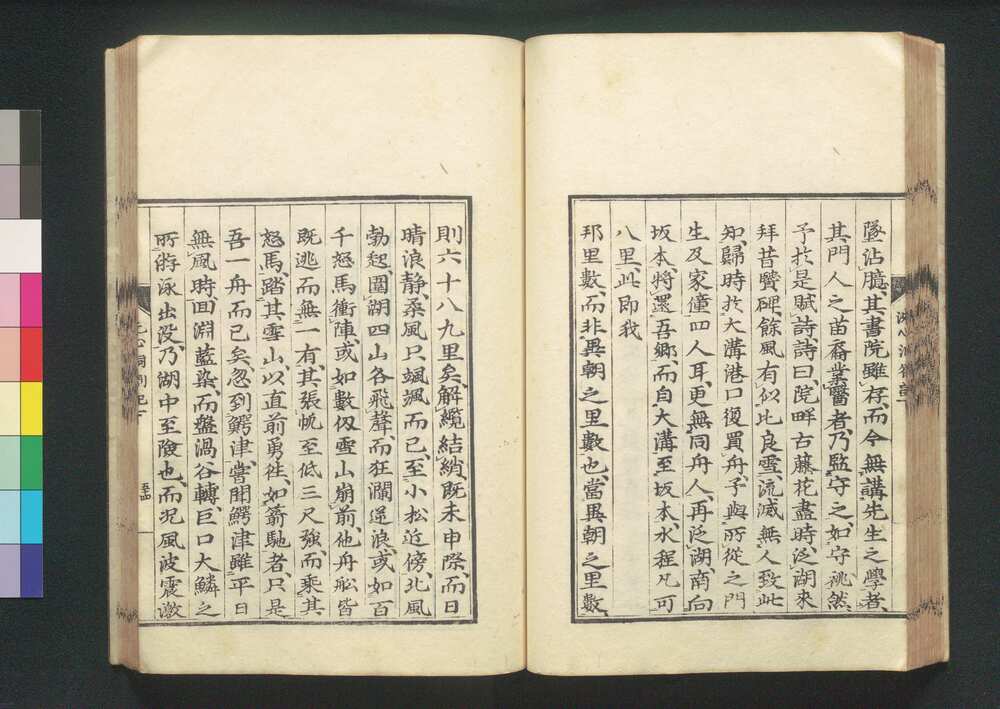 墜沾臆、其書院雖存、而今無講先生之學者、
其門人之苗裔業醫者、乃監守之、如守祧然、
予於是賦詩、詩曰院畔古藤花盡時、泛湖來
拜昔賢碑、餘風有似比良雪、流滅無人致此
知、歸時於大溝港口復買舟、予與所從之門
生及家僮四人耳、更無同舟人、再泛湖南向
坂本、將還吾鄉、而自大溝至坂本、水程凡可
八里、此卽我
邦里數、而非異朝之里數也、當異朝之里數、
則六十八九里矣、解纜結綃、既未申際、而日
晴浪靜、柔風只颯颯而已、至小松近傍、北風
勃起、圍湖四山各飛聲、而狂瀾逆浪、或如百
千怒馬衝陣、或如數仭雪山崩前、他舟舩皆
既逃而無一有、其張帆至低三尺強、而乘其
怒馬、踏其雪山、以直前勇徃、如箭馳者、只是
吾一舟而已矣、忽到鰐津、嘗聞鰐津雖平日
無風時、回淵藍染、而盤渦谷轉、巨口大鱗之
所游泳出沒、乃湖中至險也、而况風波震激